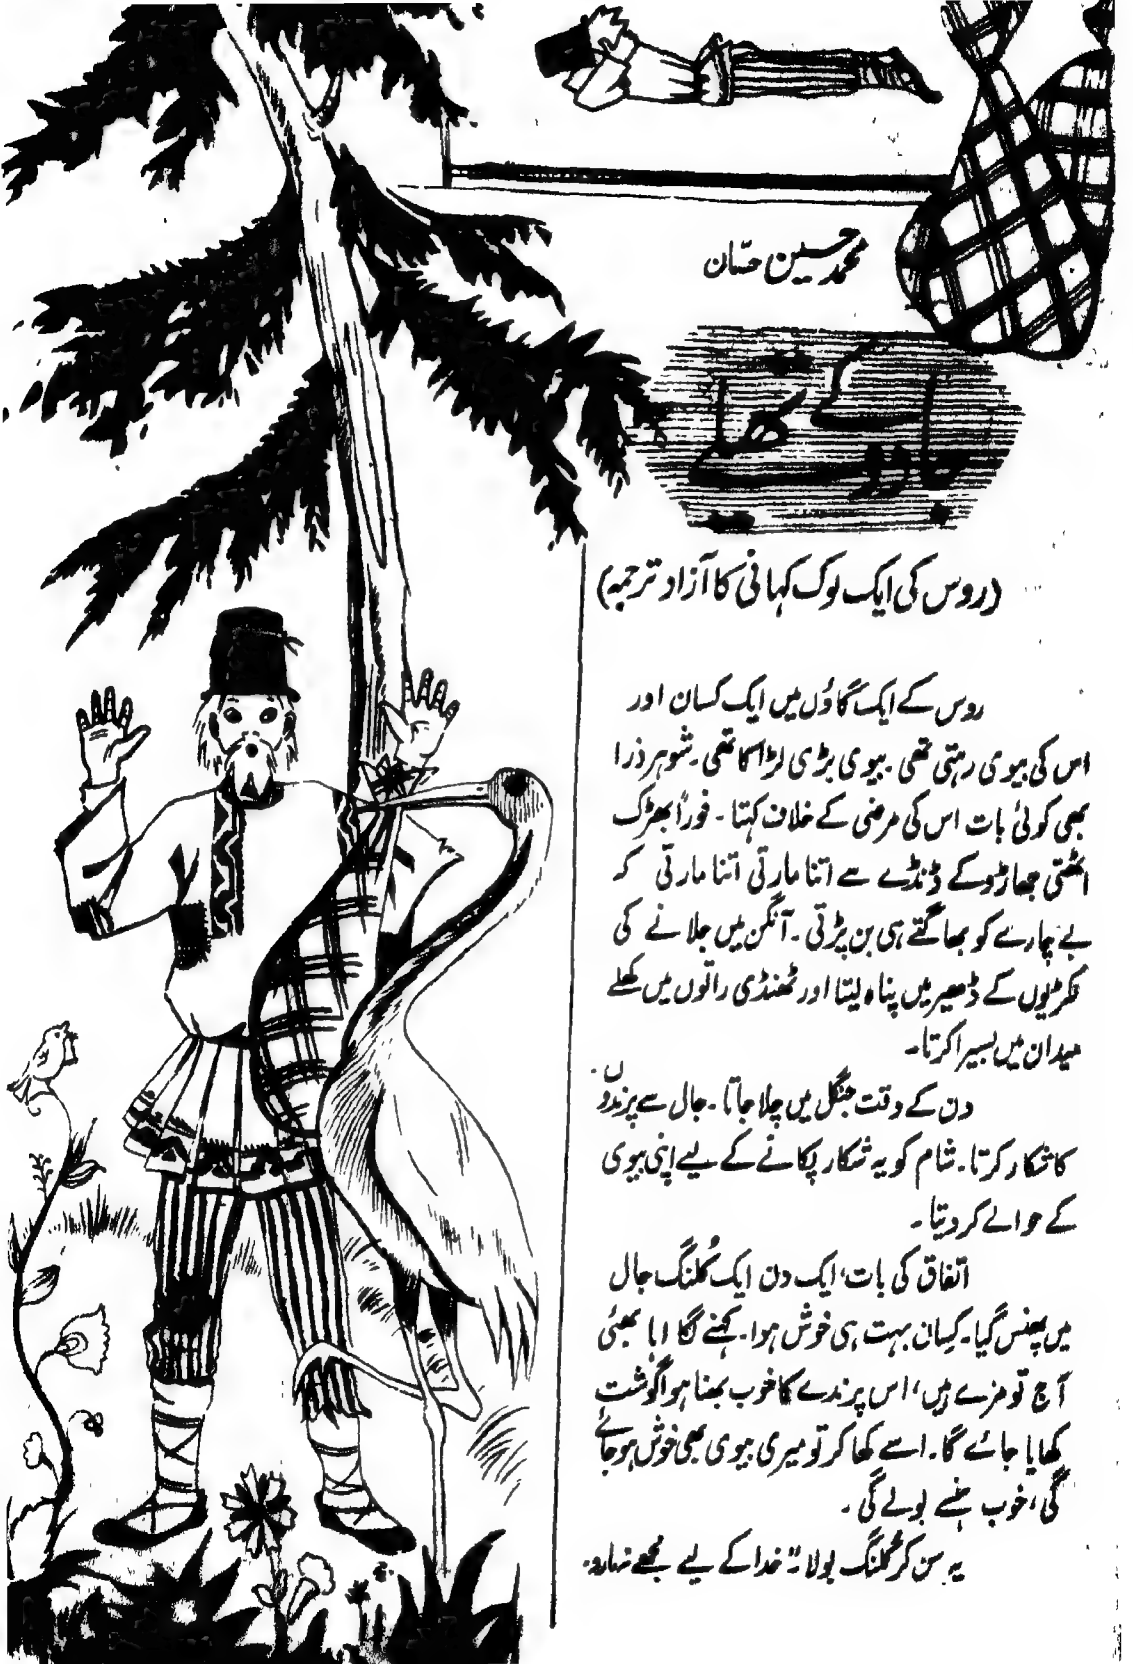 محمد حسین حسّان
جادو کے تھیلے
(روس کی ایک لوک کہانی کا آزاد ترجمہ)
روس کے ایک گاؤں میں ایک کسان اور
اس کی بیوی رہتی تھی۔ بیوی بڑی لڑاکا تھی۔ شوہر ذرا
بھی کوئی بات اس کی مرضی کے خلاف کہتا۔ فوراً بھڑک
اٹھتی جھاڑو کے ڈنڈے سے اتنا مارتی اتنا مارتی کہ
بے چارے کو بھاگتے ہی بن پڑتی۔ آنگن میں جلانے کی
لکڑیوں کے ڈھیر میں پناہ لیتا اور ٹھنڈی راتوں میں کھلے
میدان میں بسیرا کرتا۔
دن کے وقت جنگل میں چلا جاتا۔ جال سے پرندوں
کا شکار کرتا۔ شام کو یہ شکار پکانے کے لیے اپنی بیوی
کے حوالے کر دیتا۔
اتفاق کی بات، ایک دن ایک کُلنگ جال
میں پھنس گیا۔ کسان بہت ہی خوش ہوا۔ کہنے لگا اہا بھئی
آج تو مزے ہیں، اس پرندے کا خوب بھنا ہوا گوشت
کھایا جائے گا۔ اسے کھا کر تو میری بیوی بھی خوش ہو جائے
گی، خوب ہنسے بولے گی۔
یہ سن کر کُلنگ بولا۔ "خدا کے لیے مجھے نہ مارو۔